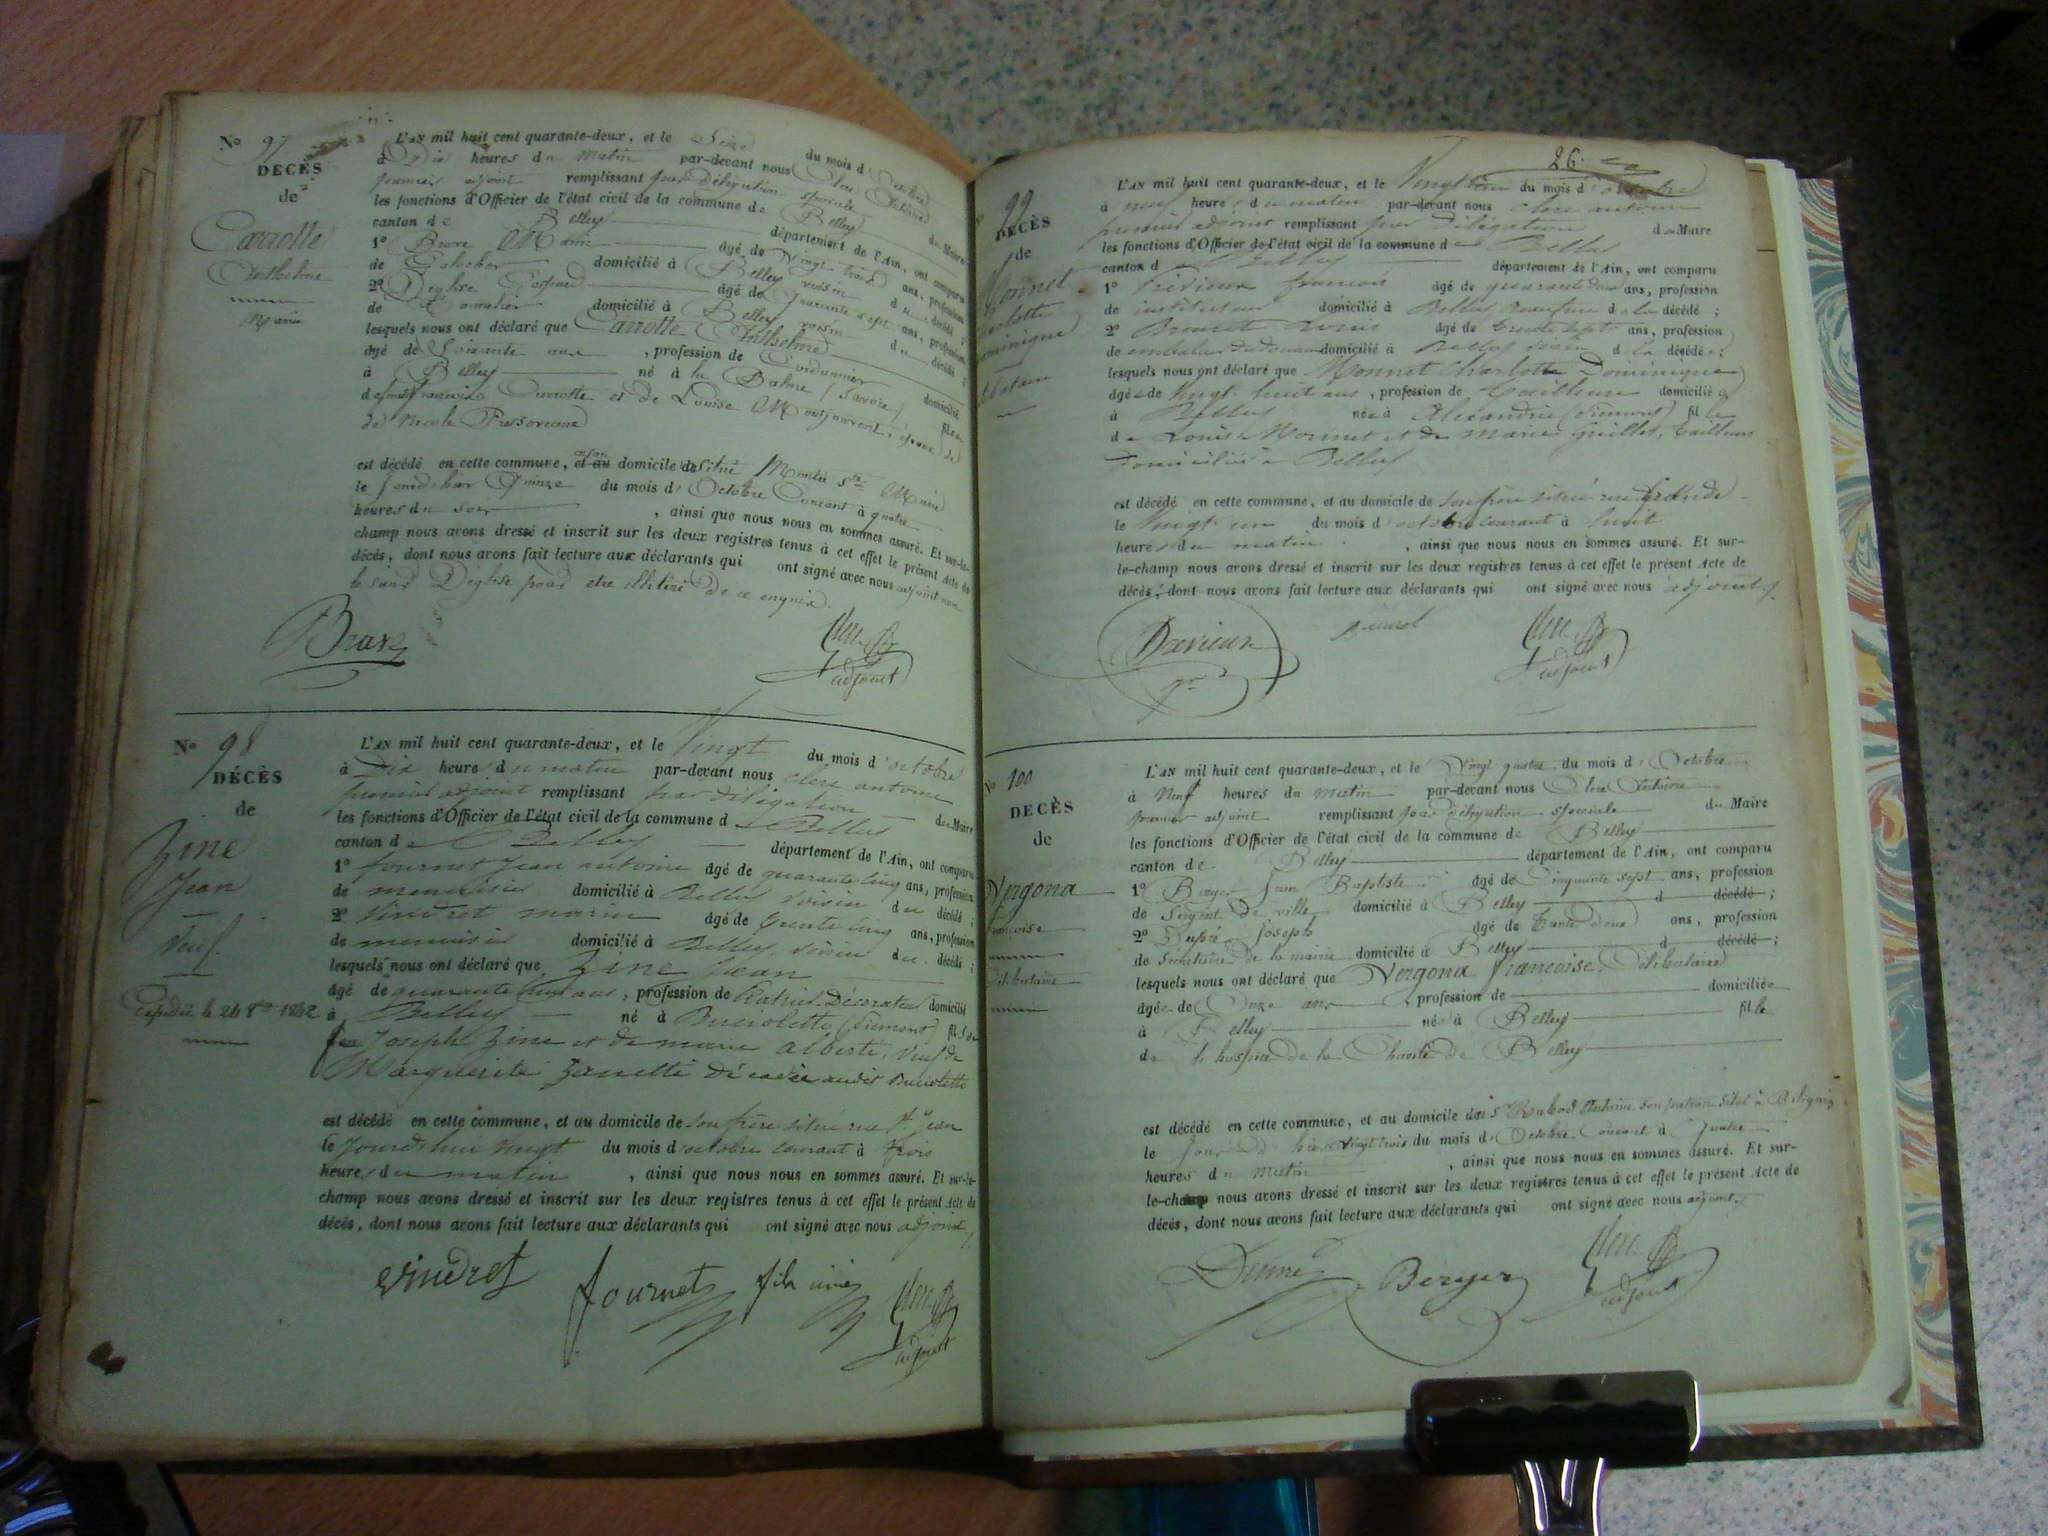 N° 97
DÉCÈS
de
Carrotte
Anthelme
Marié
L'AN mil huit cent quarante-deux, et le Seize du mois d'Octobre
à Dix heures du matin par-devant nous Clerc Antoine
premier adjoint remplissant par Délégation spéciale du Maire
les fonctions d'Officier de l'état civil de la commune de Belley
canton de Belley département de l'Ain, ont comparu
1° Brave âgé de Vingt trois ans, profession
de domicilié à Belley voisin du décédé ;
2° Deglise Gaspard âgé de quarante sept ans, profession
de domicilié à Belley voisin du décédé ;
lesquels nous ont déclaré que Carrotte Anthelme
âgé de Soixante ans , profession de Cordonnier domicilié
à Belley né à la Balme (Savoie) fils de
Carrotte et de Louise époux de
de Nicole
est décédé en cette commune, et au domicile situé Montée Ste Marie
le jour d'hier Quinze du mois d'Octobre Courant à quatre
heures du soir , ainsi que nous nous en sommes assuré. Et sur-le-
champ nous avons dressé et inscrit sur les deux registres tenus à cet effet le présent Acte de
décès, dont nous avons fait lecture aux déclarants qui ont signé avec nous adjoint non
le sieur Deglise pour être illitéré de ce enquis.
Brave
Clerc
adjoint
N° 98
DÉCÈS
de
Zine
Jean
Veuf
Expédié le 24 8bre 1842
L'AN mil huit cent quarante-deux, et le Vingt du mois d'octobre
à Dix heures du matin par-devant nous clerc antoine
premier adjoint remplissant par délégation du Maire
les fonctions d'Officier de l'état civil de la commune de Belley
canton de Belley département de l'Ain, ont comparu
1° fournet jean antoine âgé de quarante cinq ans, profession
de menuisier domicilié à Belley voisin du décédé ;
2° Vindret marin âgé de trente cinq ans, profession
de menuisier domicilié à Belley, voisin du décédé ;
lesquels nous ont déclaré que Zine Jean
âgé de quarante ans , profession de Décorateur domicilié
à Belley né à Buciolette (Piémont) fils de
feu Joseph Zine et de marie alberte, Veuf de
Marguerite Zanetti Décédée audit Buciolette
est décédé en cette commune, et au domicile de son frère situé rue St Jean
le jourd'hui vingt du mois d'octobre courant à trois
heures du matin , ainsi que nous nous en sommes assuré. Et sur-le-
champ nous avons dressé et inscrit sur les deux registres tenus à cet effet le présent Acte de
décès, dont nous avons fait lecture aux déclarants qui ont signé avec nous adjoint
Vindret
fournet fils aîné
Clerc
adjoint
26.
99
DÉCÈS
de
Monnet
Charlotte
Dominique
Célibataire
L'AN mil huit cent quarante-deux, et le Vingt un du mois d'octobre
à neuf heures du matin par-devant nous clerc antoine
premier adjoint remplissant par délégation du Maire
les fonctions d'Officier de l'état civil de la commune de Belley
canton de Belley département de l'Ain, ont comparu
1° françois âgé de quarante deux ans, profession
de instituteur domicilié à Belley de la décédée ;
2° âgé de trente sept ans, profession
de domicilié à Belley voisin de la décédée ;
lesquels nous ont déclaré que Monnet Charlotte Dominique
âgée de Vingt huit ans , profession de tailleuse domiciliée
à Belley née à Alexandrie (Piémont) fille
de Louis Monnet et de marie Guillot, tailleurs
domiciliés à Belley
est décédé en cette commune, et au domicile de son père situé rue Grande
le Vingt un du mois d'octobre courant à huit
heures du matin , ainsi que nous nous en sommes assuré. Et sur-
le-champ nous avons dressé et inscrit sur les deux registres tenus à cet effet le présent Acte de
décès, dont nous avons fait lecture aux déclarants qui ont signé avec nous adjoint
Clerc
adjoint
N° 100
DÉCÈS
de
Vergona
françoise
Célibataire
L'AN mil huit cent quarante-deux, et le Vingt quatre du mois d'Octobre
à Neuf heures du matin par-devant nous Clerc Antoine
premier adjoint remplissant par Délégation spéciale du Maire
les fonctions d'Officier de l'état civil de la commune de Belley
canton de Belley département de l'Ain, ont comparu
1° Berger Jean Baptiste âgé de Cinquante sept ans, profession
de Sergent de ville domicilié à Belley d décédé ;
2° Joseph âgé de Trente Deux ans, profession
de Secrétaire de la mairie domicilié à Belley d décédé ;
lesquels nous ont déclaré que Vergona françoise, Célibataire
âgée de Onze ans , profession de domiciliée
à Belley née à Belley fille
de l'hospice de la Charité de Belley
est décédé en cette commune, et au domicile du Sr Antoine son patron situé à
le jour d'hier vingt trois du mois d'Octobre Courant à quatre
heures du matin , ainsi que nous nous en sommes assuré. Et sur-
le-champ nous avons dressé et inscrit sur les deux registres tenus à cet effet le présent Acte de
décès, dont nous avons fait lecture aux déclarants qui ont signé avec nous adjoint
Berger
Clerc
adjoint